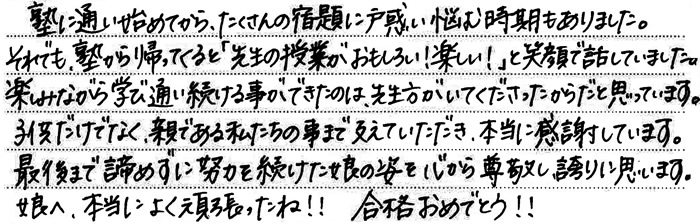 塾に通い始めてから、たくさんの宿題に戸惑い悩む時期もありました。
それでも、塾から帰ってくると「先生の授業がおもしろい！楽しい！」と笑顔で話していました。
楽しみながら学び通い続ける事ができたのは、先生方がいてくださったからだと思っています。
子供だけでなく、親である私たちの事まで支えていただき、本当に感謝しています。
最後まで諦めずに努力を続けた娘の姿を心から尊敬し誇りに思います。
娘へ、本当によく頑張ったね！！　合格おめでとう！！